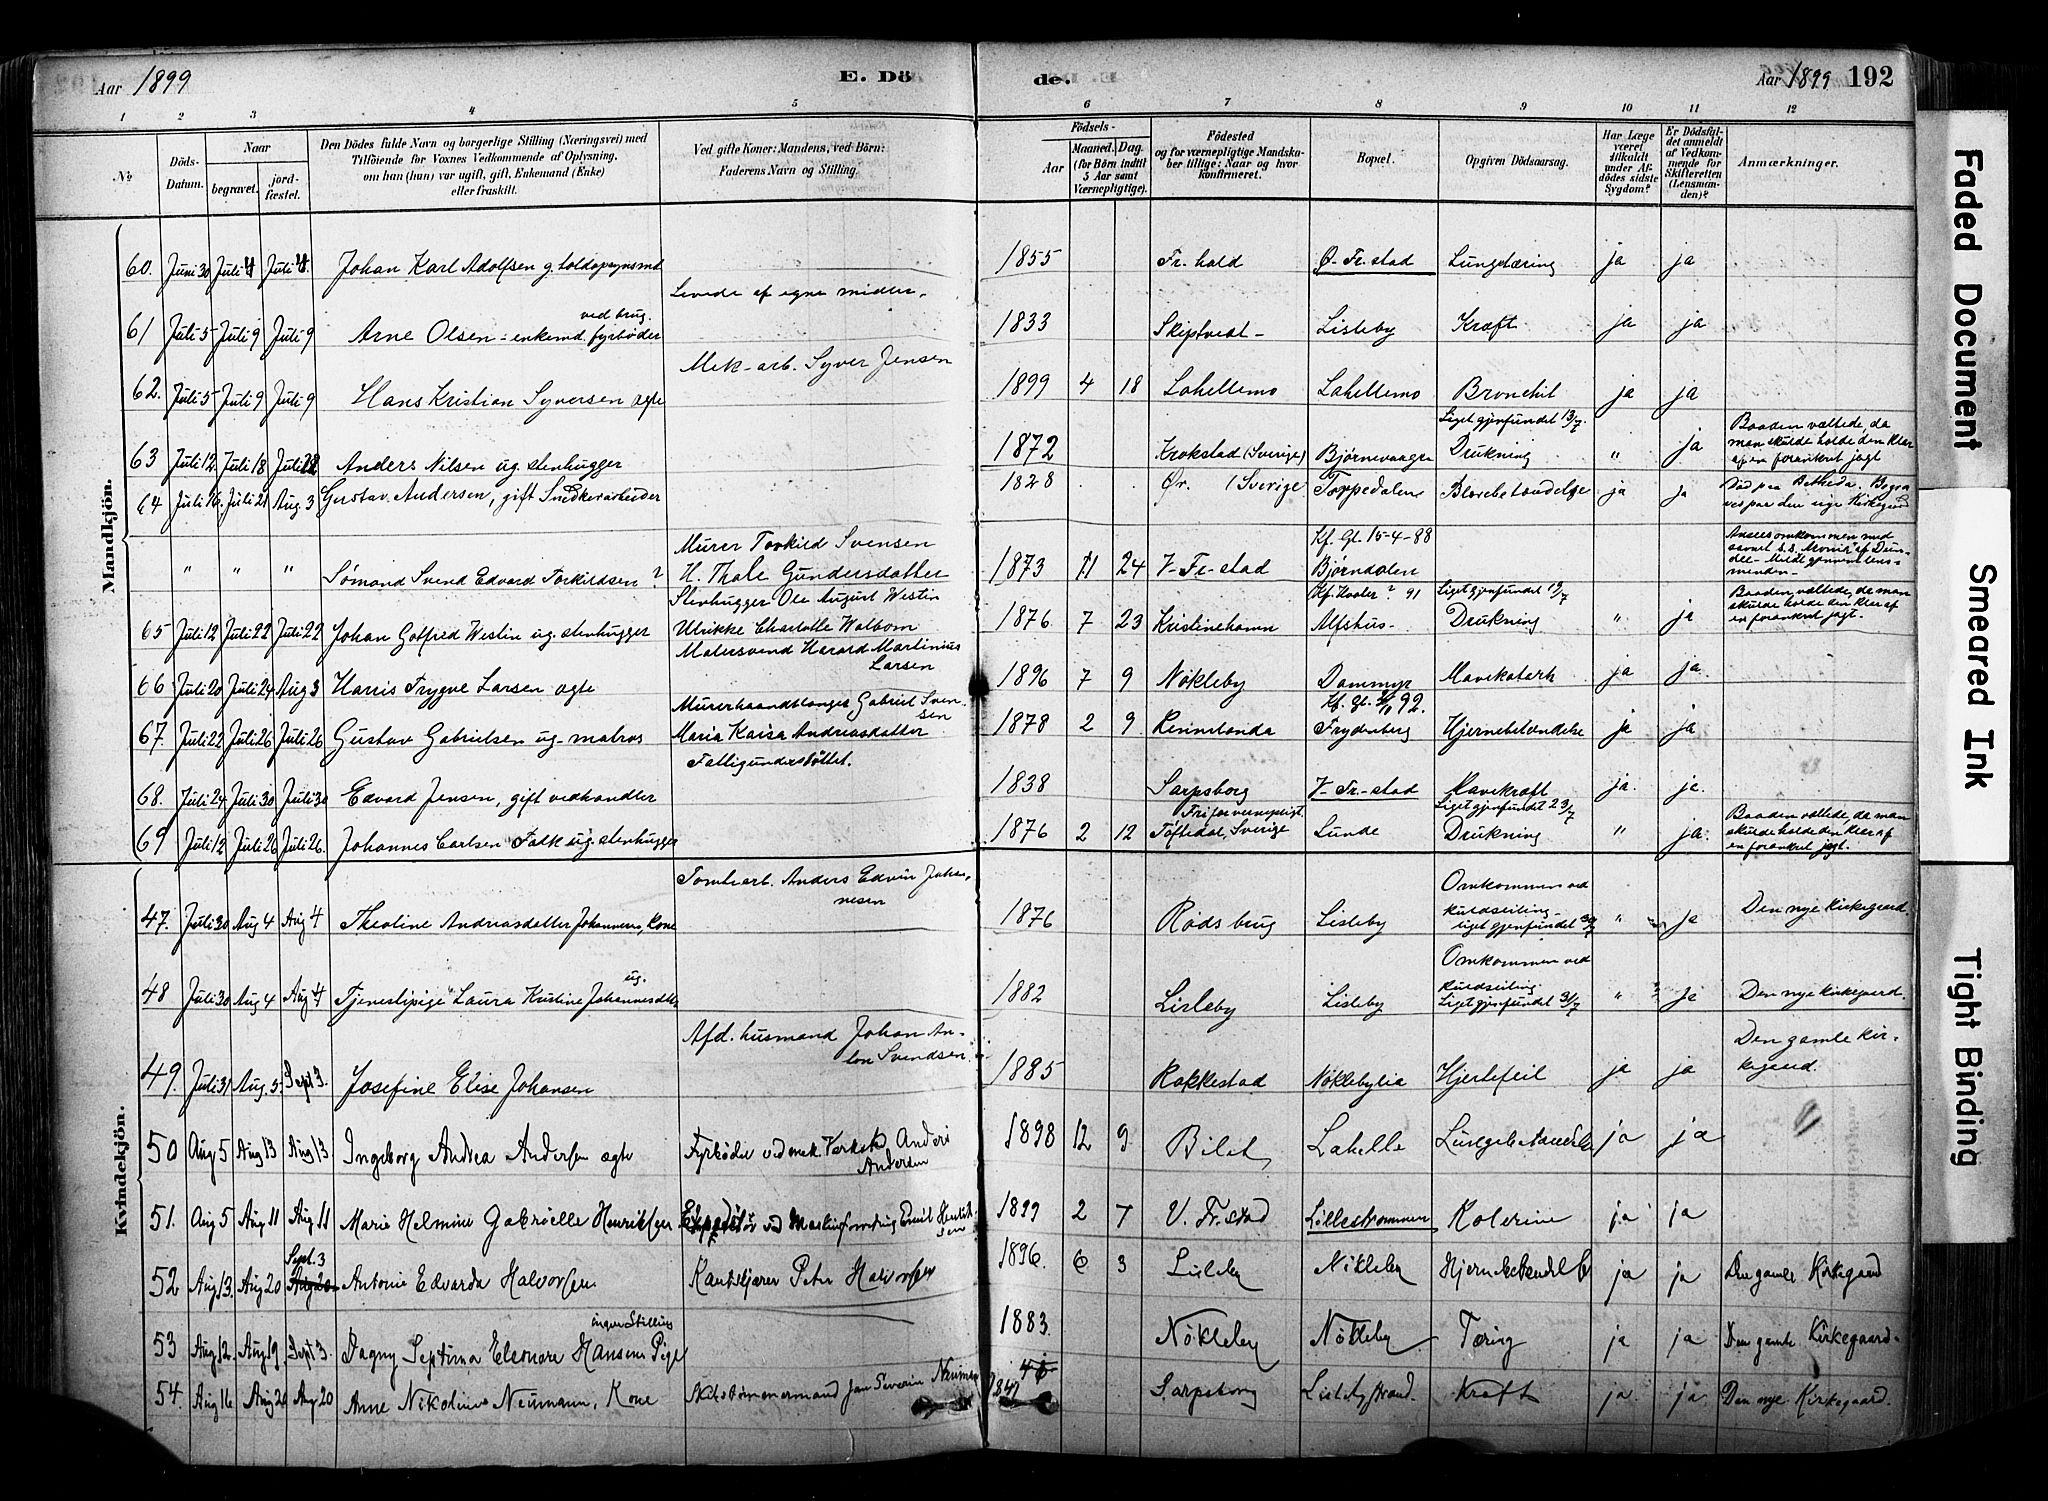 Aar 1899 E. Dö de. Aar 1899 192
1 2 3 4 5 6 7 8 9 10 11 12
№ Döds-Datum. Naar begravet. jord-fæstet. Den Dödes fulde Navn og borgerlige Stilling (Næringsvei) med Tilföiende for Voxnes Vedkommende af Oplysning, om han (hun) var ugift, gift, Enkemand (Enke) eller fraskilt. Ved gifte Koner: Mandens, ved Börn: Faderens Navn og Stilling. Födsels- Aar Maaned. Dag. (for Börn indtil 5 Aar samt Værnepligtige). Födested og for værnepligtige Mandska-ber tillige: Naar og hvor konfirmeret. Bopæl. Opgiven Dödsaarsag. Har Læge været tilkaldt under Af-dödes sidste Sygdom? Er Dödsfal-det anmeldt af Vedkom-mende for Skifteretten (Lensman-den)? Anmærkninger.
Mandkjön.
60. Juni 30 Juli 4 Juli 4. Johan Karl Adolfsen g. toldopsynsmd 1855 Fr. hald Ö. Fr. stad Lungetæring ja ja
Levede af egne midler.
61 Juli 5 Juli 9 Juli 9 Arne Olsen - enkemd. fyrböder ved brug. 1833 Skiptvedt Lisleby Kræft ja ja
Mek. arb. Syver Jensen
62. Juli 5 Juli 9 Juli 9 Hans Kristian Syversen ægte 1899 4 18 Lahellemo Lahellemo Bronchit ja ja
Liget gjenfundet 13/7.
63 Juli 12 Juli 18 Juli Anders Nilsen ug. stenhugger 1872 Krokstad (Sverige) Björnevaagen Drukning " ja Baaden væltede, da man skulde holde den klar af en forankret jagt
64 Juli 16. Juli 21 Aug. 3 Gustav Andersen, gift Snedkerarbeider 1828 Ør. (Sverige Torpedalen Blærebetændelse ja ja Död paa Betheda. Begra
Murer Torkild Svensen Kf. Gl. 15-4-88
" " " Sömand Svend Edvard Torkildsen ? H. Thale Gundersdatter 1873 11 24 V-Fr-stad Björndalen Ansees omkommen med
Stenhugger Ole August Westin Liget gjenfundet
65 Juli 12 Juli 22 Juli 22 Johan Gotfred Westin ug. stenhugger Ulrikke Charlotte Walbom 1876. 7 23 Kristinehamn Alfshus Drukning " ja Baaden væltede, da man skulde holde den klar af en forankret jagt.
Malersvend Harald Martinius Larsen
66 Juli 20 Juli 24 Aug 3 Harris Trygve Larsen ægte 1896 7 9 Nökleby Dammyr Mavekatarh ja ja.
Murerhaandtlanger Gabriel Sven-sen
67. Juli 22 Juli 26 Juli 26 Gustav Gabrielsen ug. matros Maria Kaisa Andreasdatter 1878 2 9 Frydenberg Hjernebetændelse ja ja
Fattigunderstöttet.
68. Juli 24 Juli 30 Juli 30 Edvard Jensen, gift vedhandler 1838 Sarpsborg V-Fr-stad Mavekræft ja. ja.
Fri for vernepligt. Liget gjenfundet 23/7
69 Juli 12 Juli 26 Juli 26. Johannes Carlsen Falk ug. stenhugger 1876 2 12 Töftedal, Sverige Lunde Drukning " ja. Baaden væltede, da man skulde holde den klar af en forankret jagt.
Kvindekjön.
Tomtearb. Anders Edvin Johan-nesen
47. Juli 30 Aug 4 Aug 4 Theoline Andreasdatter Johannesen, Kone 1876 Röds brug Lisleby Omkommen ved kuldseiling liget gjenfundet " ja Den nye Kirkegaard.
48 Juli 30 Aug 4 Aug 4 Tjenestepige Laura Kristine Johannesdtr. ug. 1882 Lisleby Lisleby Omkommen ved kuldseiling. Liget gjenfundet 31/7 " ja Den nye Kirkegaard.
Afd. husmand Johan An-ton Svendsen.
49. Juli 31 Aug. 5. Sept 3. Josefine Elise Johansen 1885 Rakkestad Nöklebylia Hjertefeil ja ja Den gamle Kir-kegaard.
50 Aug 5 Aug 13 Aug 13 Ingeborg Andrea Andersen ægte Fyrböder ved mek. Værksted Anders Andersen 1898 12 9 Bilet Lahelle Lungebetændelse ja ja
51. Aug 5 Aug 11 Aug 11 Marie Helmine Gabrielle Henriksen Expeditör ved Emil Henrik-sen 1899 2 7 V. Fr. stad Lillestrømmen Kolerine ja ja
52 Aug 13. Aug 20 Sept. 3 Aug 20 Antonie Edvarda Halvorsen Peter Halvorsen 1896. 6 3 Lisleby Nökleby Hjernebetændelse ja ja Den gamle Kirkegaard
53 Aug 12. Aug 19. Sept 3. Dagny Septima Eleonore Hansen Pige ingen Stilling 1883. Nökleby Nökleby Tæring ja ja Den gamle Kirkegaard.
54 Aug 16 Aug 20 Aug 20 Anne Nikoline Neumann, Kone Skibstömmermand Jan Severin Neuman 1847 Sarpsborg Lislebystrand. Kræft ja. ja. Den nye Kirkegaard.
Faded Document
Smeared Ink
Tight Binding